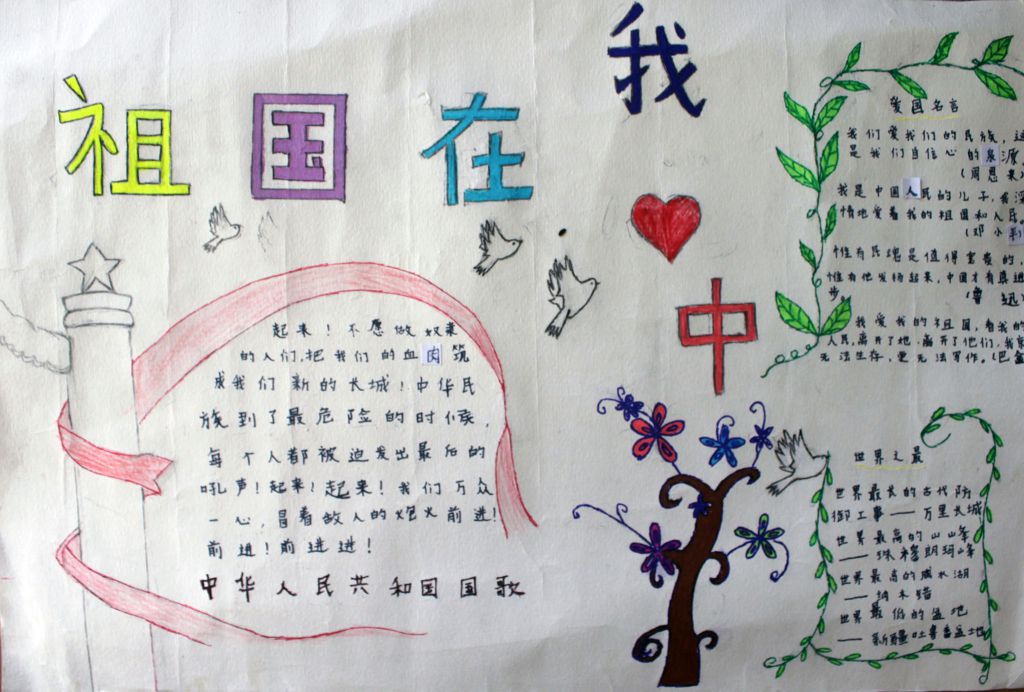 祖国在我
中
起来!不愿做奴隶
的人们,把我们的血肉筑
成我们新的长城!中华民
族到了最危险的时候,
每个人都被迫发出最后的
吼声!起来!起来!我们万众
一心,冒着敌人的炮火前进!
前进!前进进!
中华人民共和国国歌
爱国名言
我们爱我们的民族,这
是我们自信心的泉源
(周恩来)
我是中国人民的儿子,我深
情地爱着我的祖国和人民。
(邓小平)
惟有民魂是值得宝贵的,
惟有他发扬起来,中国才有真进
步。(鲁迅)
我爱我的祖国,爱我的
人民,离开了她,离开了他们,我就
无法生存,更无法写作。(巴金
世界之最
世界最长的古代防
御工事——万里长城
世界最高的山山峰
——珠穆朗玛峰
世界最高的咸水湖
——纳木错
世界最低的盆地
——新疆吐鲁番盆地